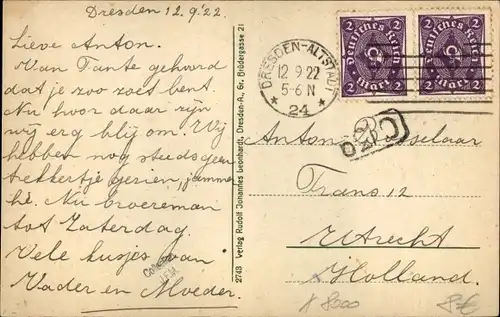 Dresden 12.9.'22.
Lieve Anton.
Van Tante gehoord
dat je zoo zoet bent.
Nu hoor daar zijn
wij erg blij om. Wij
hebben nog steeds geen
trekkertje gezien, jammer
hè. Nu broereman
tot Zaterdag.
Vele kusjes van
Vader en Moeder.
2743 Verlag Rudolf Johannes Leonhardt, Dresden-A., Gr. Brüdergasse 21
DRESDEN-ALTSTADT
12 9 22
5-6 N
* 24 *
2 Deutsches Reich 2
2 Mark 2
2 Deutsches Reich 2
2 Mark 2
Anton
Trans 12
Utrecht
Holland.
8000
8€